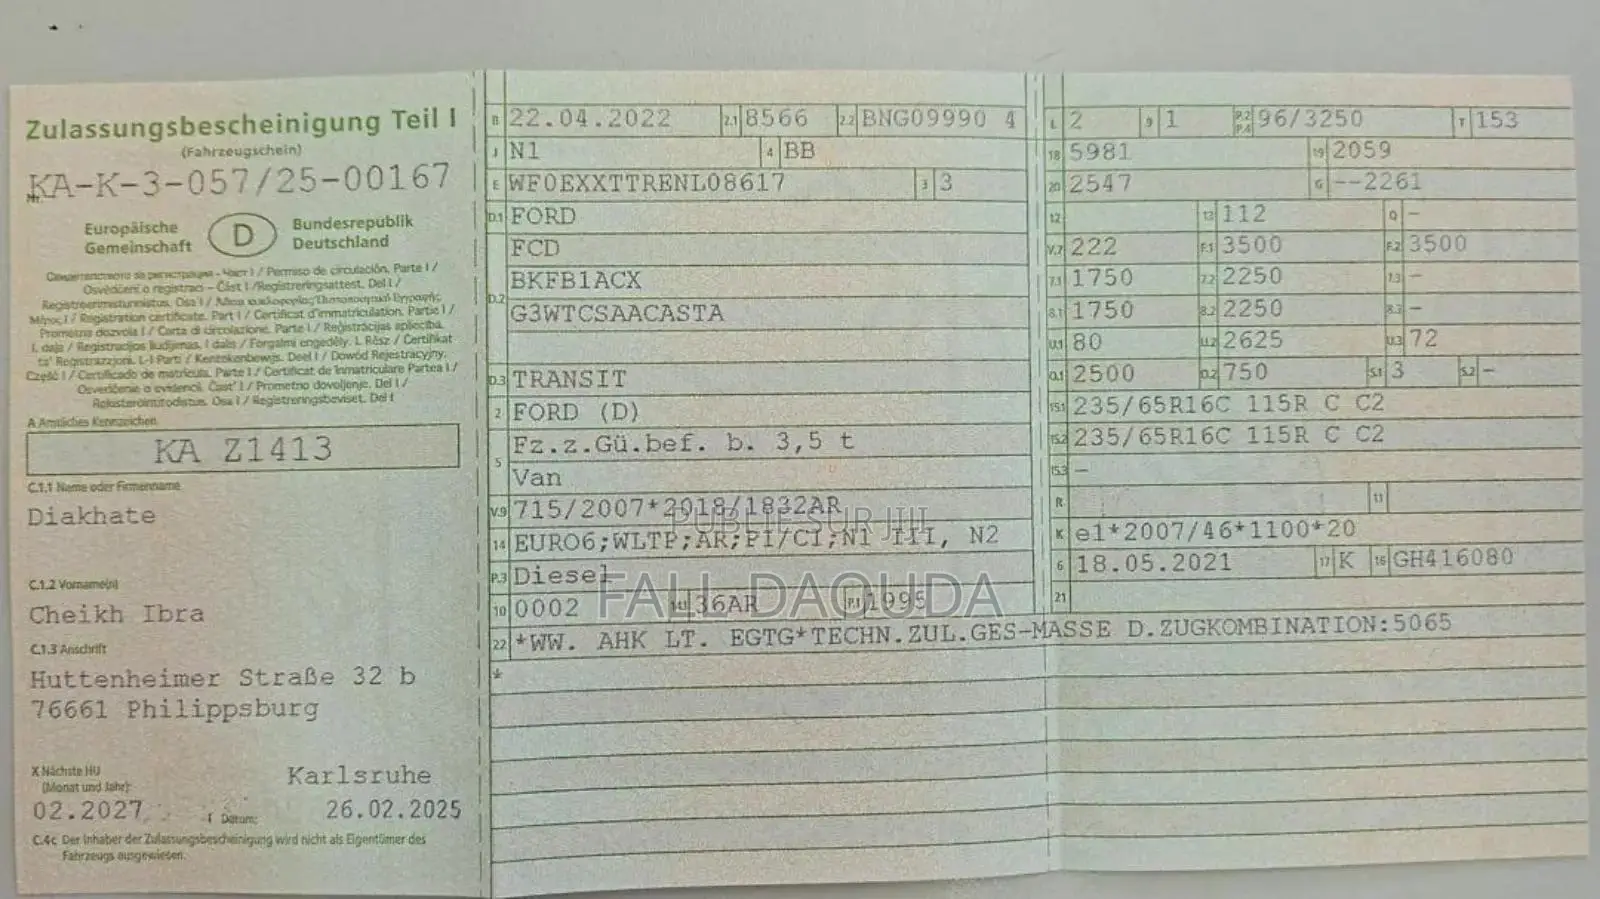 Zulassungsbescheinigung Teil I
(Fahrzeugschein)
Nr. KA-K-3-057/25-00167
Europäische Gemeinschaft
D
Bundesrepublik Deutschland
Osvědčení o registraci – Část I / Registreringsattest. Del I /
Registration certificate. Part I / Certificat d'immatriculation. Partie I /
Prometna dozvola I / Carta di circolazione. Parte I / Reģistrācijas apliecība.
A Amtliches Kennzeichen
KA Z1413
C.1.1 Name oder Firmenname
Diakhate
C.1.2 Vorname(n)
Cheikh Ibra
C.1.3 Anschrift
Huttenheimer Straße 32 b
76661 Philippsburg
X Nächste HU
(Monat und Jahr):
02.2027
Karlsruhe
I Datum:
26.02.2025
C.4c Der Inhaber der Zulassungsbescheinigung wird nicht als Eigentümer des
Fahrzeugs ausgewiesen.
B 22.04.2022 2.1 8566 2.2 BNG09990 4
J N1 4 BB
E WF0EXXTTRENL08617 3 3
D.1 FORD
D.2 FCD
BKFB1ACX
G3WTCSAACASTA
D.3 TRANSIT
2 FORD (D)
5 Fz.z.Gü.bef. b. 3,5 t
Van
V.9 715/2007*2018/1832AR
14 EURO6;WLTP;AR;PI/CI;N1 III, N2
P.3 Diesel
10 0002 14.1 36AR P.1 1995
22 *WW. AHK LT. EGTG*TECHN.ZUL.GES-MASSE D.ZUGKOMBINATION:5065
*
L 2 9 1 P.2 P.4 96/3250 T 153
18 5981 19 2059
20 2547 G --2261
12 13 112 Q -
V.7 222 F.1 3500 F.2 3500
7.1 1750 7.2 2250 7.3 -
8.1 1750 8.2 2250 8.3 -
U.1 80 U.2 2625 U.3 72
O.1 2500 O.2 750 S.1 3 S.2 -
15.1 235/65R16C 115R C C2
15.2 235/65R16C 115R C C2
15.3 -
R 11
K e1*2007/46*1100*20
6 18.05.2021 17 K 16 GH416080
21
PUBLIÉ SUR JIJI
FALL DAOUDA